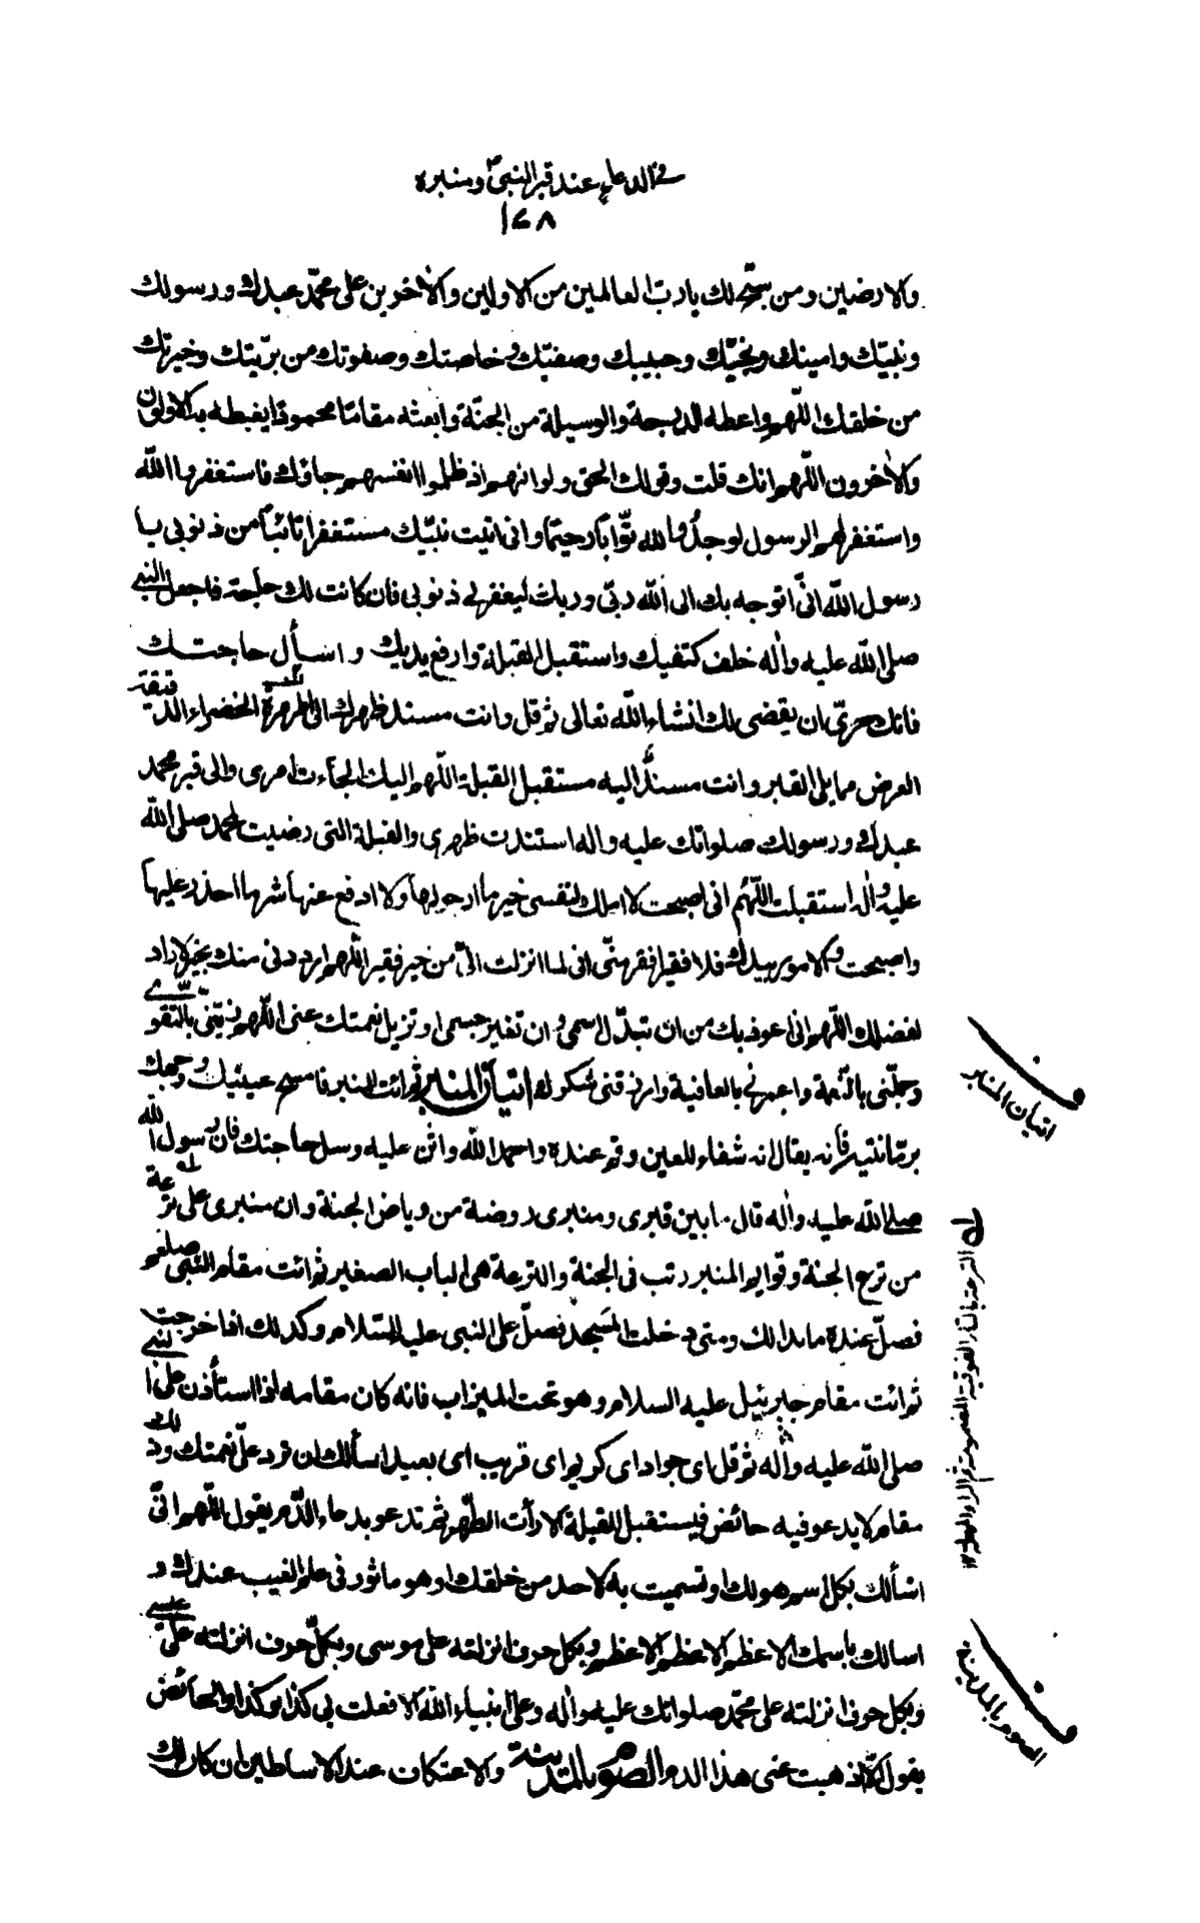 في الدعاء عند قبر النبي ص ومنبره
١٤٨
والارضين ومن سبّح لك يا ربّ العالمين من الاولين والآخرين على محمّد عبدك ورسولك
ونبيّك وامينك ونجيّك وحبيبك وصفيّك وخاصتك وصفوتك من بريّتك وخيرتك
من خلقك اللّهم واعطه الدرجة والوسيلة من الجنّة وابعثه مقاما محمودا يغبطه به الاولون
والآخرون اللّهم انك قلت وقولك الحق ولو انهم اذ ظلموا انفسهم جاؤك فاستغفروا اللّه
واستغفر لهم الرسول لوجدوا الله توّابا رحيما وانى اتيت نبيّك مستغفرا تائبا من ذنوبى يا
رسول اللّه انّى اتوجه بك الى اللّه ربّى وربك ليغفر لي ذنوبى فان كانت لك حاجة فاجعل النبي
صلى اللّه عليه وآله خلف كتفيك واستقبل القبلة وارفع يديك واسأل حاجتك
فانك حريّ ان يقضى لك انشاء اللّه تعالى ثم قل وانت مسند ظهرك الى المروة الخضراء الدقيقة
العرض مما يلى القبر وانت مسند اليه مستقبل القبلة اللّهم اليك الجاءت امرى والى قبر محمد
عبدك ورسولك صلواتك عليه واله استندت ظهرى والقبلة التى رضيت لمحمد صلى اللّه
عليه واله استقبلت اللّهم انى اصبحت لا املك لنفسى خير ما ارجو لها ولا ادفع عنها شر ما احذر عليها
واصبحت الامور بيدك فلا فقير افقر منّى انى لما انزلت الىّ من خير فقير اللّهم ارددنى منك بخير لا راد
لفضلك اللّهم انى اعوذ بك من ان تبدّل اسمى او ان تغير جسمى او تزيل نعمتك عنى اللّهم زيّنّى بالتقوى
وجمّلنى بالنّعمة واعمرنى بالعافية وارزقنى شكرك اتيان المنبر ثم ائت المنبر فامسح عينيك ووجهك
برمّانتيه فانه يقال انه شفاء للعين وقم عنده واحمد اللّه واثن عليه وسل حاجتك فان رسول اللّه
صلى اللّه عليه وآله قال ما بين قبرى ومنبرى روضة من رياض الجنة وان منبرى على ترعة له
من ترع الجنة وقوايم المنبر رتب فى الجنة والترعة هى الباب الصغير ثم ائت مقام النّبى صلعم
فصلّ عنده ما بدا لك ومتى دخلت المسجد فصلّ على النبى عليه السّلام وكذلك اذا خرجت
ثم ائت مقام جبرئيل عليه السلام وهو تحت الميزاب فانه كان مقامه اذا استأذن على النبي
صلى اللّه عليه وآله ثم قل اى جواد اى كريم اى قريب اى بعيد اسألك ان ترد علىّ نعمتك وذلك
مقام لا يدعو فيه حائض فيستقبل القبلة الا رأت الطّهر ثم تدعو بدعاء الدّم يقول اللّهم انّى
اسألك بكل اسم هو لك او تسميت به لاحد من خلقك او هو ماثور فى علم الغيب عندك و
اسالك باسمك الاعظم الاعظم الاعظم وبكل حرف انزلته على موسى وبكلّ حرف انزلته على عيسى
وبكل حرف انزلته على محمّد صلواتك عليه وآله وعلى انبياء اللّه الا فعلت بى كذا وكذا والحائض
يقول الا اذهبت عنى هذا الدم الصوم بالمدينة والاعتكاف عند الاساطين ان كان لك
اتيان المنبر
له الترعة بالتاء الفوقية المضمومة ثم الراء المهملة ١٢
الصوم بالمدينة